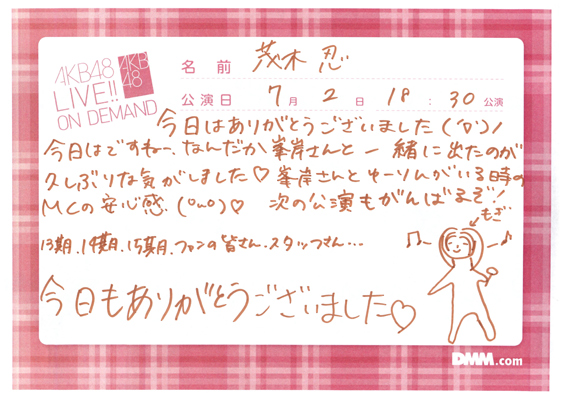 AKB48
LIVE!!
ON DEMAND
AKB
48
名前 茂木 忍
公演日 7月 2日 18:30公演
今日はありがとうございました('▽')ノ
今日はですねー、なんだか峯岸さんと一緒に出たのが
久しぶりな気がしました♡ 峯岸さんとゆーりんがいる時の
MCの安心感(°ω°)♡ 次の公演もがんばるぞ!
もぎ
13期、14期、15期、ファンの皆さん、スタッフさん...
今日もありがとうございました♡
DMM.com